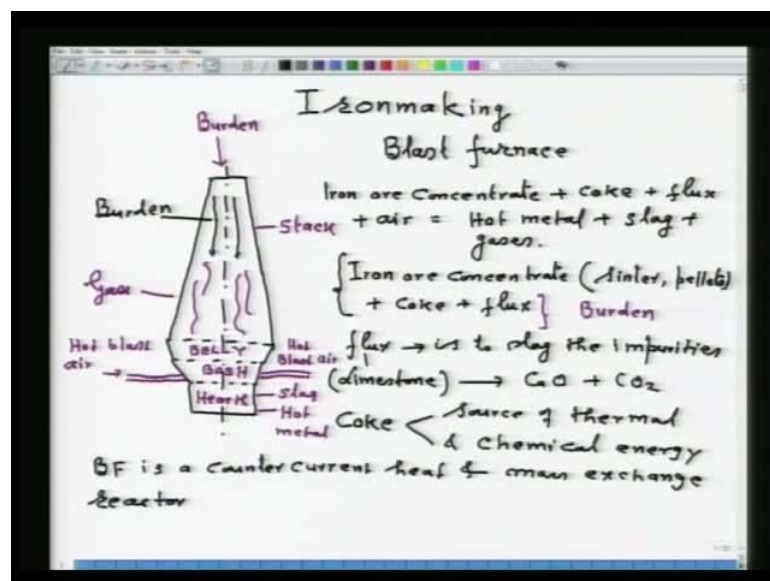 Ironmaking
Blast furnace
Burden
Burden
Stack
Gas
Hot blast
air
Hot
Blast air
BELLY
BOSH
Hearth
slag
Hot
metal
Iron ore concentrate + coke + flux
+ air = Hot metal + slag +
gases.
{ Iron ore concentrate (sinter, pellets)
+ coke + flux } Burden
flux → is to slag the impurities
(limestone) → CaO + CO2
Coke < Source of thermal
& chemical energy
BF is a counter current heat & mass exchange
reactor